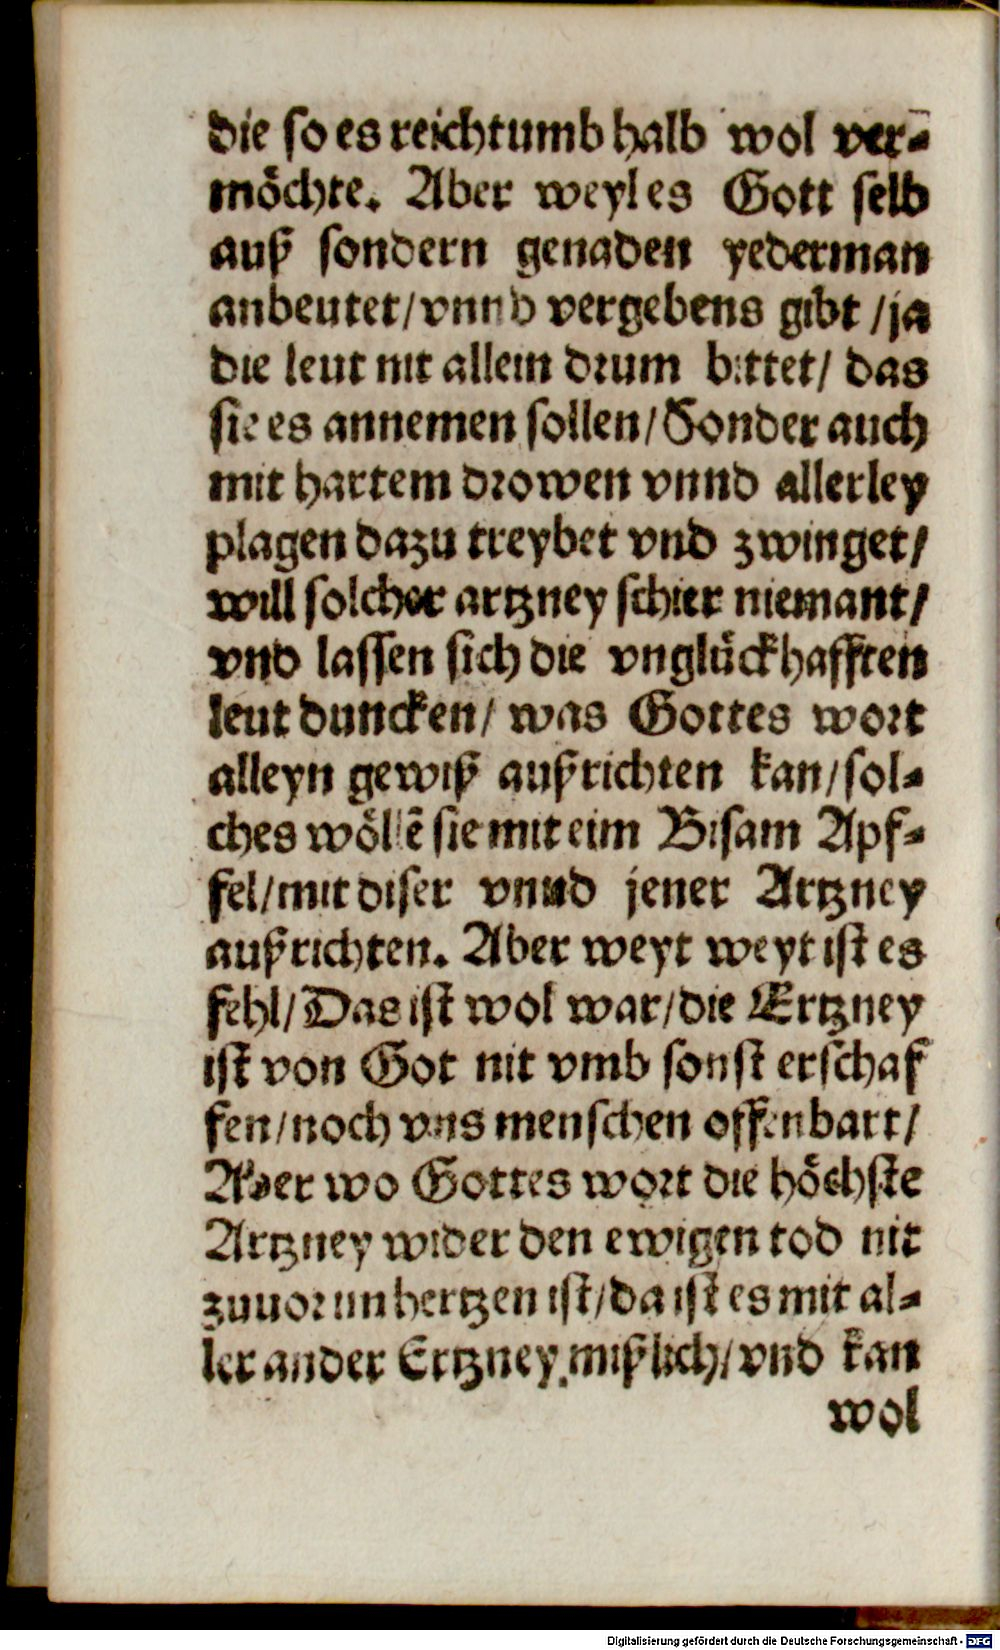 die so es reichtumb halb wol ver⸗
möchte. Aber weyl es Gott selb
auß sondern genaden yederman
anbeutet/vnnd vergebens gibt /ja
die leut nit allein drum bittet/ das
sie es annemen sollen/Sonder auch
mit hartem drowen vnnd allerley
plagen dazu treybet vnd zwinget/
will solcher artzney schier niemant/
vnd lassen sich die vnglückhafften
leut duncken/ was Gottes wort
alleyn gewiß außrichten kan/sol⸗
ches wöllẽ sie mit eim Bisam Apf⸗
fel/mit diser vnnd jener Artzney
außrichten. Aber weyt weyt ist es
fehl/Das ist wol war/die Ertzney
ist von Got nit vmb sonst erschaf
fen/noch vns menschen offenbart/
Aber wo Gottes wort die höchste
Artzney wider den ewigen tod nit
zuuor im hertzen ist/da ist es mit al⸗
ler ander Ertzney mißlich/vnd kan
wol
Digitalisierung gefördert durch die Deutsche Forschungsgemeinschaft - DFG